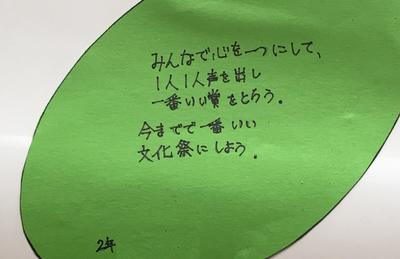 みんなで心を一つにして、
1人1人声を出し
一番いい賞をとろう。
今までで一番いい
文化祭にしよう。
2年